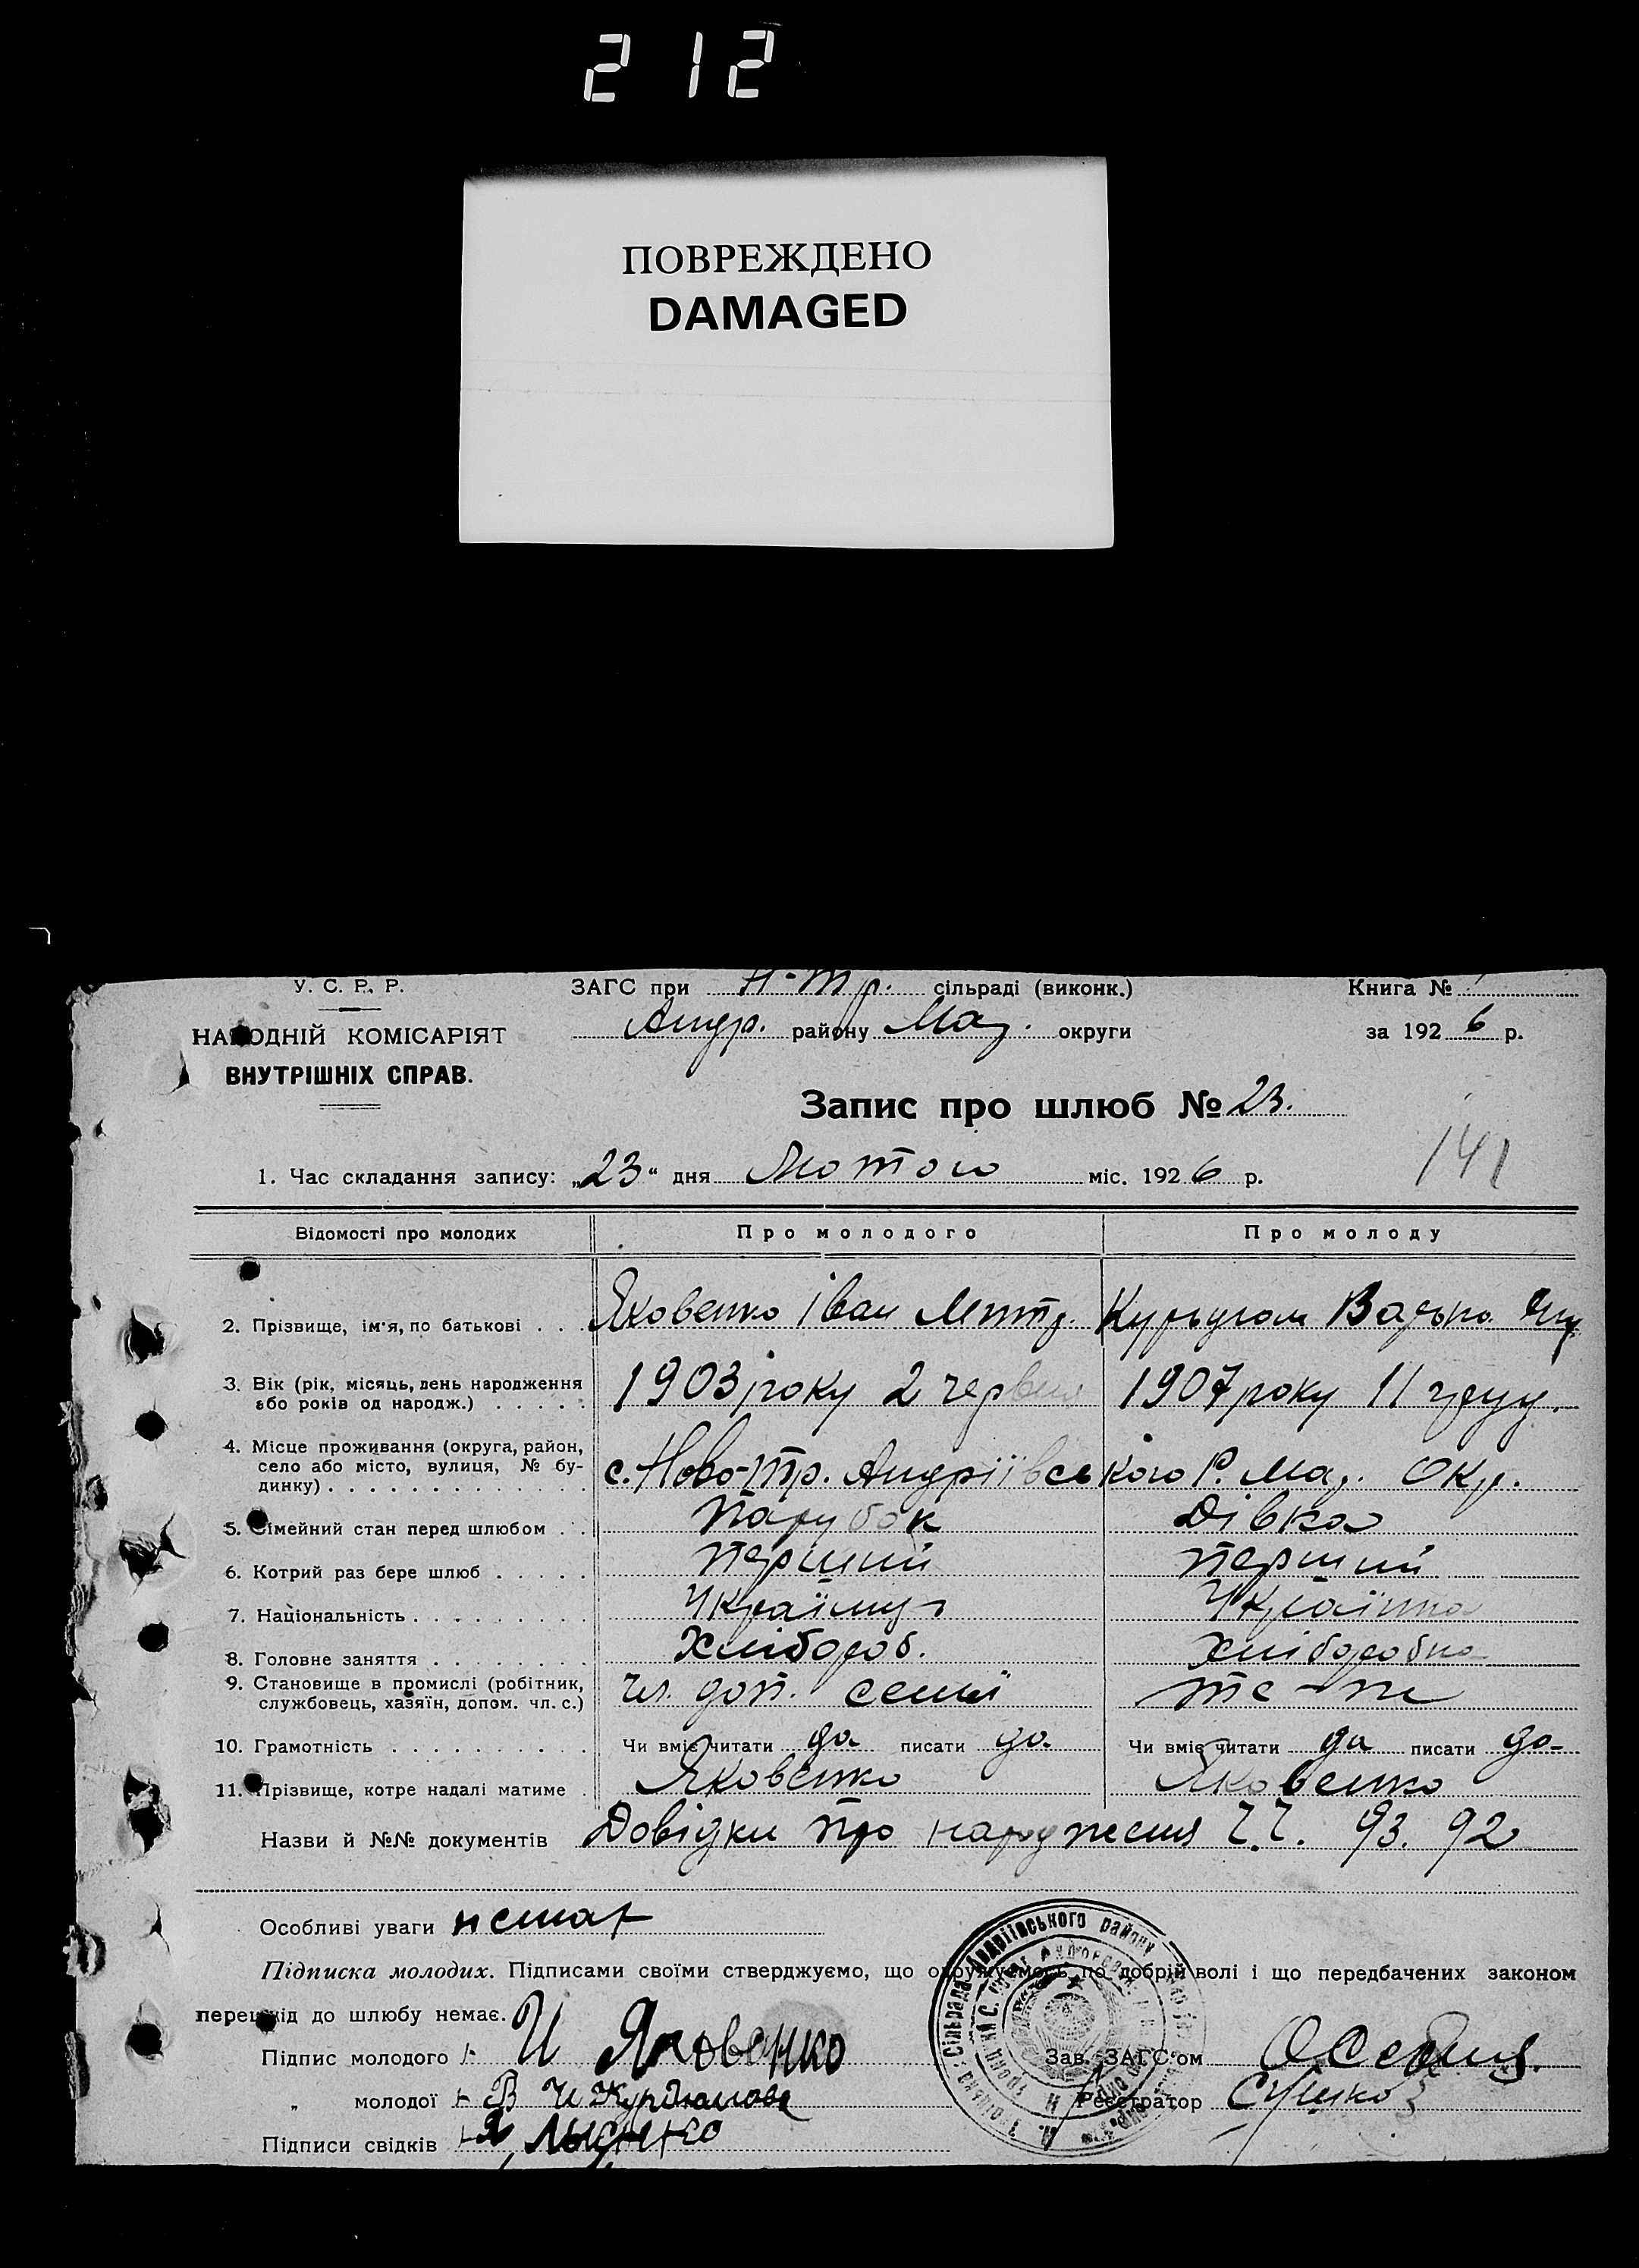 212
ПОВРЕЖДЕНО
DAMAGED
У. С. Р. Р.
НАРОДНІЙ КОМІСАРІЯТ
ВНУТРІШНІХ СПРАВ.
ЗАГС при Н-Тр. сільраді (виконк.)
Андр. району Мар. округи
Книга №
за 1926 р.
Запис про шлюб № 23.
141
1. Час складання запису: „23“ дня Лютого міс. 1926 р.
Відомості про молодих Про молодого Про молоду
2. Прізвище, ім'я, по батькові . . . Яковенко Іван Митр.
3. Вік (рік, місяць, день народження або років од народж.) . . . . . 1903 року 2 червня 1907 року 11 груд.
4. Місце проживання (округа, район, село або місто, вулиця, № будинку) . . . с. Ново-Тр. Андріївського Р. Мар. Окр.
5. Сімейний стан перед шлюбом . . Парубок Дівка
6. Котрий раз бере шлюб . . . . . Перший Перший
7. Національність . . . . . . . . . Українец Українка
8. Головне заняття . . . . . . . . Хлібороб. Хлібородка
9. Становище в промислі (робітник, службовець, хазяїн, допом. чл. с.) Чл. доп. семьї те-ж
10. Грамотність . . . . . . . . . . Чи вміє читати да писати да Чи вміє читати да писати да
11. Прізвище, котре надалі матиме . Яковенко Яковенко
Назви й №№ документів Довідки про народження Ч.Ч. 93. 92
Особливі уваги немає
Підписка молодих. Підписами своїми стверджуємо, що одружуємось по добрій волі і що передбачених законом
перешкід до шлюбу немає.
Підпис молодого И Яковенко
„ молодої В И Курдюмова
Підписи свідків Я Лысенко
Зав. ЗАГС'ом
Реєстратор
Сільрада Андріївського району